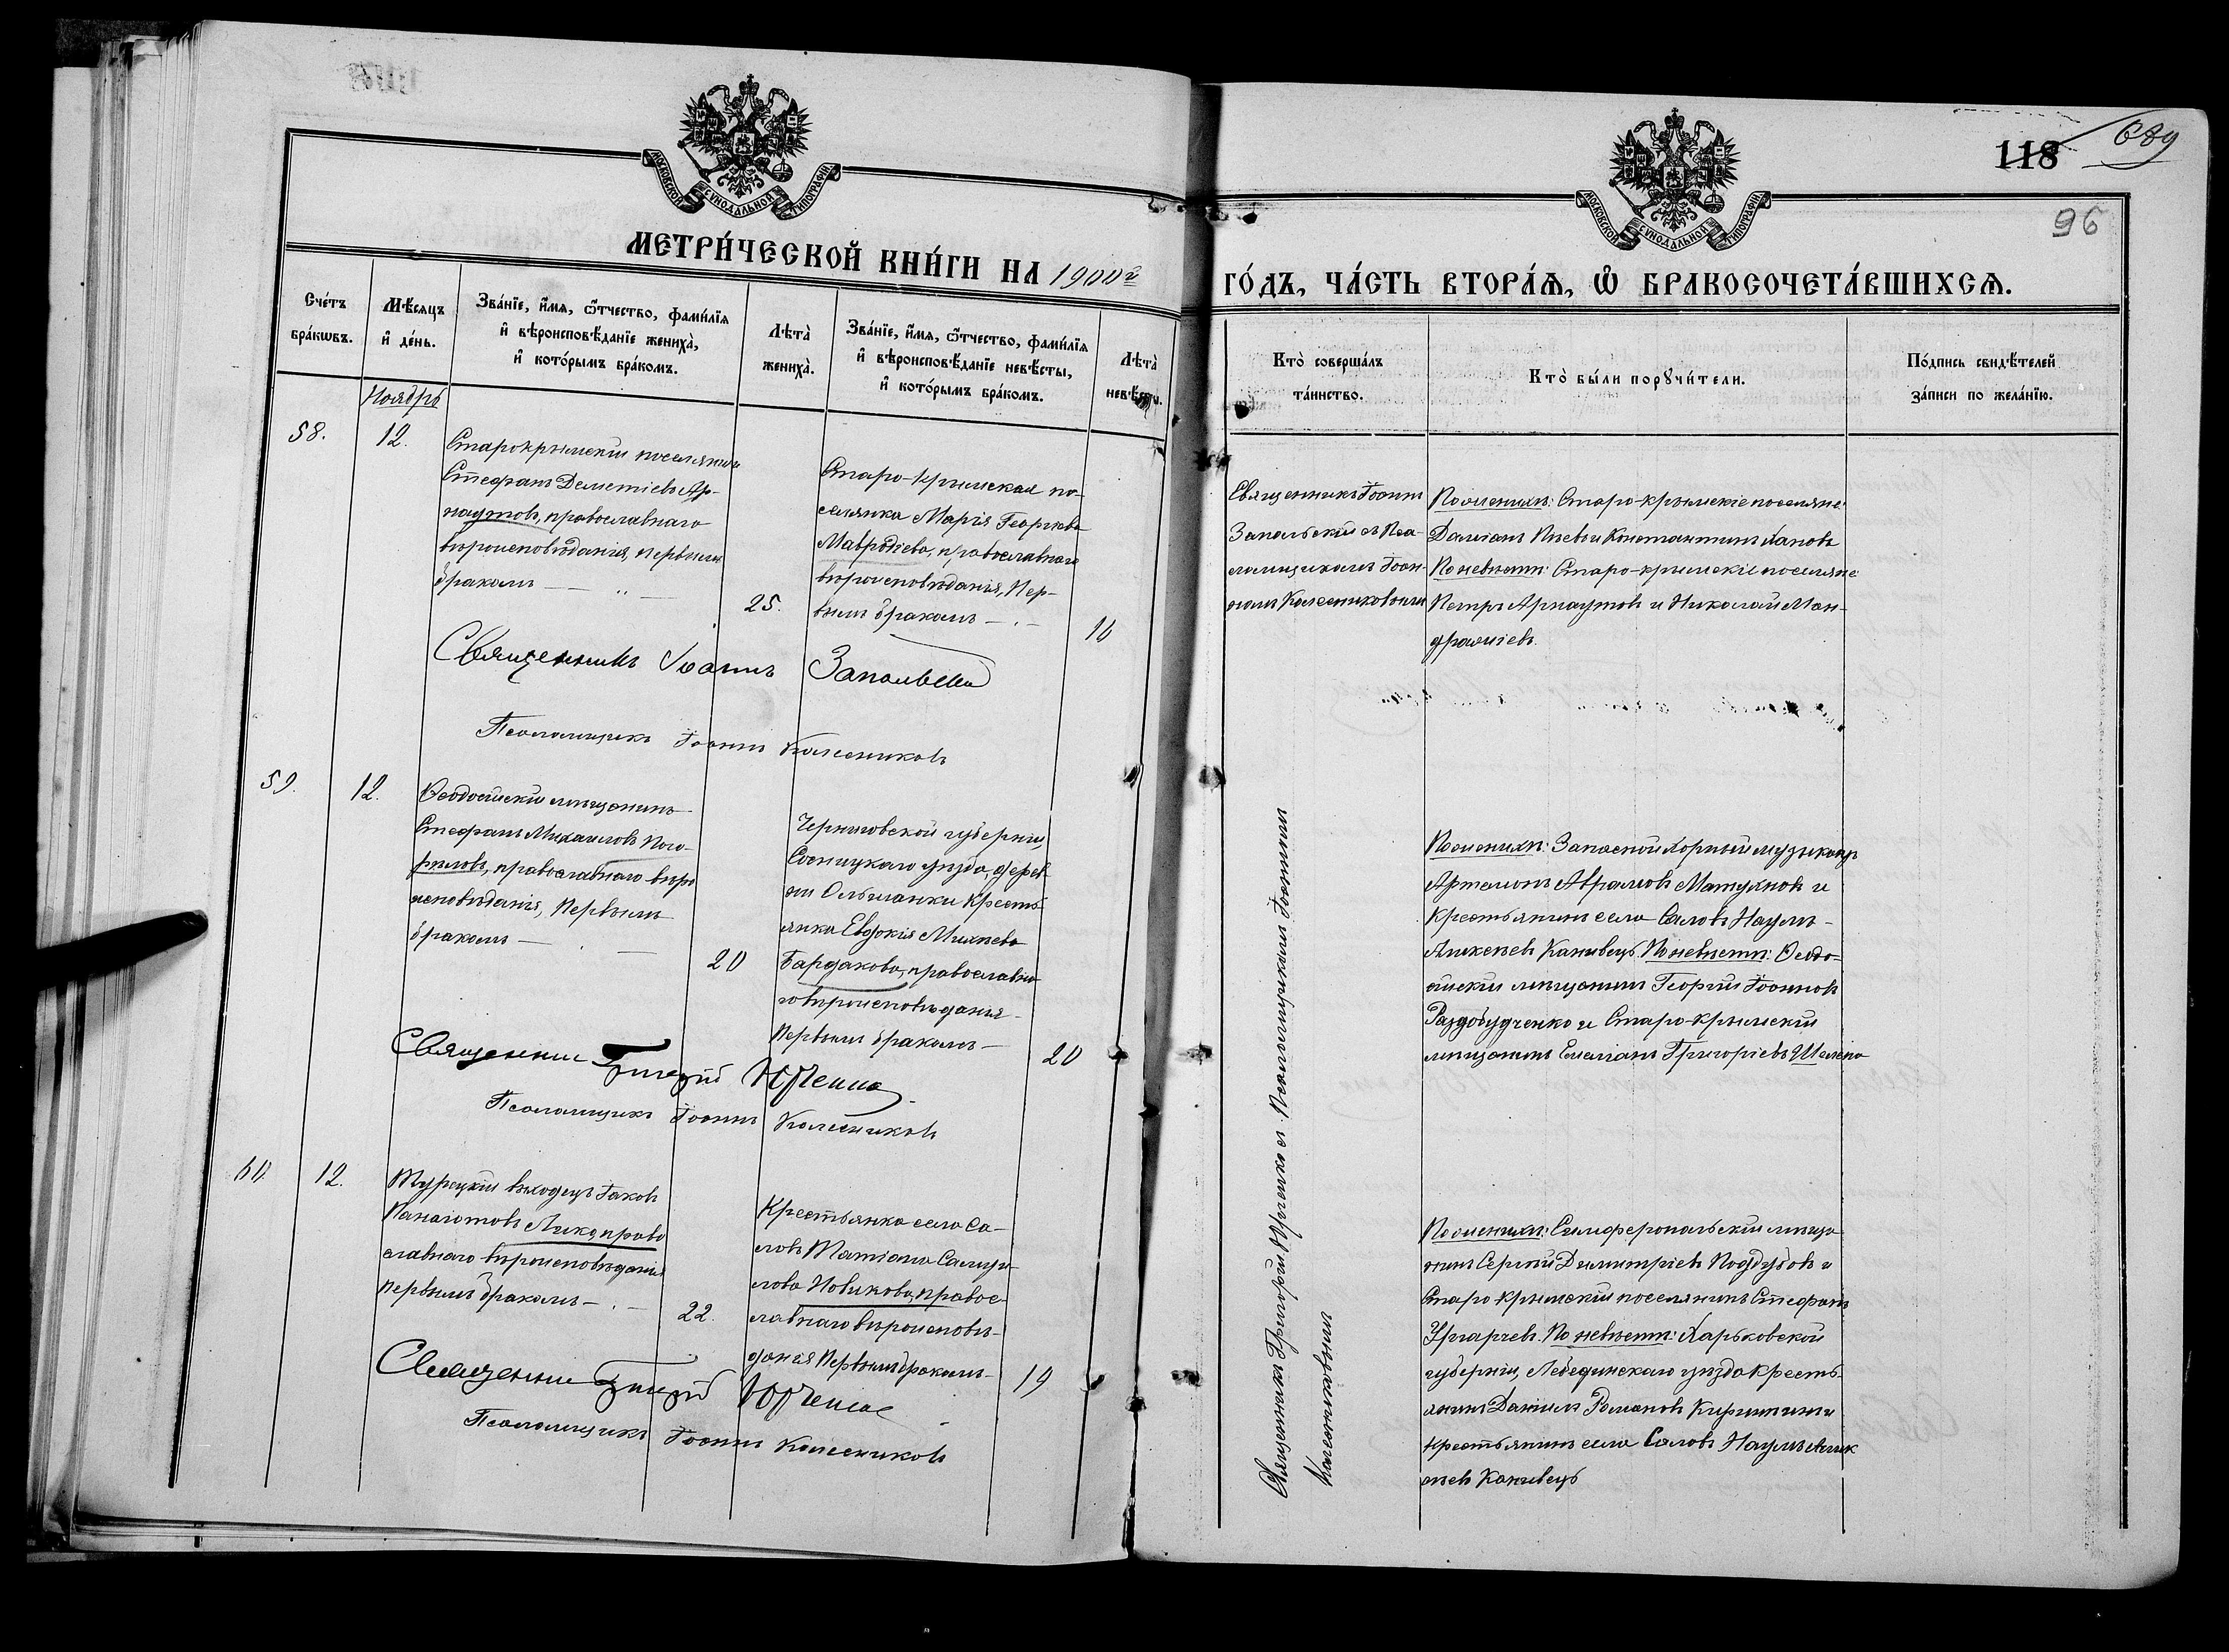 118
689
96
МОСКОВСКОЙ СѴНОДАЛЬНОЙ ТИПОГРАФІИ
МОСКОВСКОЙ СѴНОДАЛЬНОЙ ТИПОГРАФІИ
МЕТРИ́ЧЕСКОЙ КНИ́ГИ НА 1900й
ГО́ДЪ, ЧА́СТЬ ВТОРА́Ѧ, Ѽ БРАКОСОЧЕТА́ВШИХСѦ.
Сче́тъ
бра́кѡвъ.
Мѣ́сяцъ
и҆ де́нь.
Зва́нїе, и҆́мѧ, ѻ҆́тчество, фами́лїѧ
и҆ вѣроисповѣ́данїе жениха̀,
и҆ кото́рымъ бра́комъ.
Лѣта̀
жениха̀.
Зва́нїе, и҆́мѧ, ѻ҆́тчество, фами́лїѧ
и҆ вѣроисповѣ́данїе невѣ́сты,
и҆ кото́рымъ бра́комъ.
Лѣта̀
невѣ́сты.
Кто̀ соверша́лъ
та́инство.
Кто̀ бы́ли порꙋчи́тели.
По́дпись свидѣ́телей
за́писи по жела́нїю.
Ноябрь
58.
12.
Старокрымскій поселянинъ
Стефанъ Деметіевъ Ар-
наутовъ, православнаго
вѣроисповѣданія, первымъ
бракомъ
25.
Старо-Крымская по-
селянка Марія Георгіева
Мавродіева, православнаго
вѣроисповѣданія, Пер-
вымъ бракомъ
16
Священникъ Іоаннъ
Запольскій съ Пса-
ломщикомъ Іоан-
номъ Колесниковымъ
По женихѣ: Старо-крымскіе поселяне
Даміанъ Пневъ и Константинъ Хаповъ
По невѣстѣ: Старо-крымскіе поселяне
Петръ Арнаутовъ и Николай Ман-
дражіевъ.
Священникъ Іоаннъ Запольскій
Псаломщикъ Іоаннъ Колесниковъ
59.
12.
Ѳеодосійскій мѣщанинъ
Стефанъ Михаиловъ Пого-
рѣловъ, православнаго вѣро
исповѣданія, Первымъ
бракомъ
20
Черниговской губерніи,
Сосницкаго уѣзда, дерев
ни Ольшанки Кресть-
янка Евдокія Михѣева
Бардакова, православна
го вѣроисповѣданія
Первымъ бракомъ
20
Священникъ Григорій Юрченко съ Псаломщикомъ Іоанномъ
Колесниковымъ
По женихѣ: Запасной хорный музыкантъ
Артемонъ Аврамовъ Матухновъ и
Крестьянинъ села Саловъ Наумъ
Алексѣевъ Канивецъ. По невѣстѣ: Ѳеодо-
сійскій мѣщанинъ Георгій Іоанновъ
Раздобудченко и Старо-Крымскій
мѣщанинъ Емеліанъ Григоріевъ
Священникъ Григорій Юрченко
Псаломщикъ Іоаннъ Колесниковъ
60.
12.
Турецкій выходецъ Іаковъ
Панаіотовъ Лико, право
славнаго вѣроисповѣданія
Первымъ бракомъ
22.
Крестьянка села Са-
ловъ Татіана Самуи-
лова Новикова, правос-
лавнаго вѣроисповѣ-
данія Первымъ бракомъ
19
По женихѣ: Симферопольскій мѣща
нинъ Сергѣй Димитріевъ Поддубовъ и
Старо Крымскій поселянинъ Стефанъ
По невѣстѣ: Харьковской
губерніи, Лебединскаго уѣзда кресть-
янинъ Даніилъ Романовъ и
крестьянинъ села Саловъ Наумъ Алек
сѣевъ Канивецъ
Священникъ Григорій Юрченко
Псаломщикъ Іоаннъ Колесниковъ